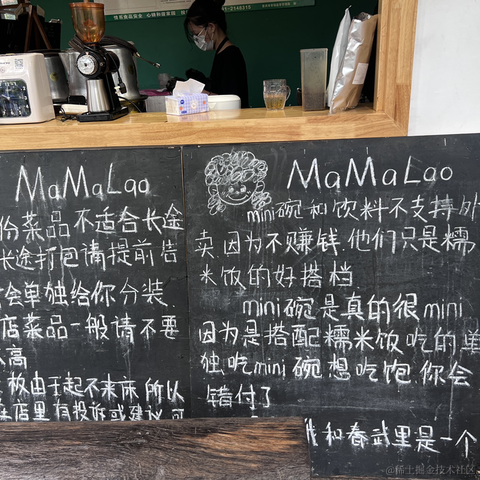 MaMaLao
份菜品不适合长途
长途打包请提前告
会单独给你分装.
店菜品一般请不要
高
板由于起不来床所以
店里有投诉或建议可
MaMaLao
mini碗和饮料不支持外
卖.因为不赚钱.他们只是糯
米饭的好搭档
mini碗是真的很mini
因为是搭配糯米饭吃的单
独吃mini碗想吃饱.你会
错付了
和春武里是一个
@稀土掘金技术社区